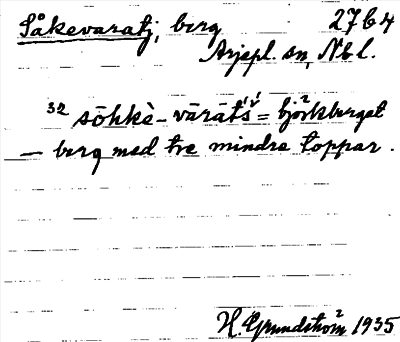 Såkevaratj, berg 27 C 4
Arjepl. sn, Nbl.
32 sōhkè-vārātś = björkberget
— berg med tre mindre toppar.
H. Grundström 1935